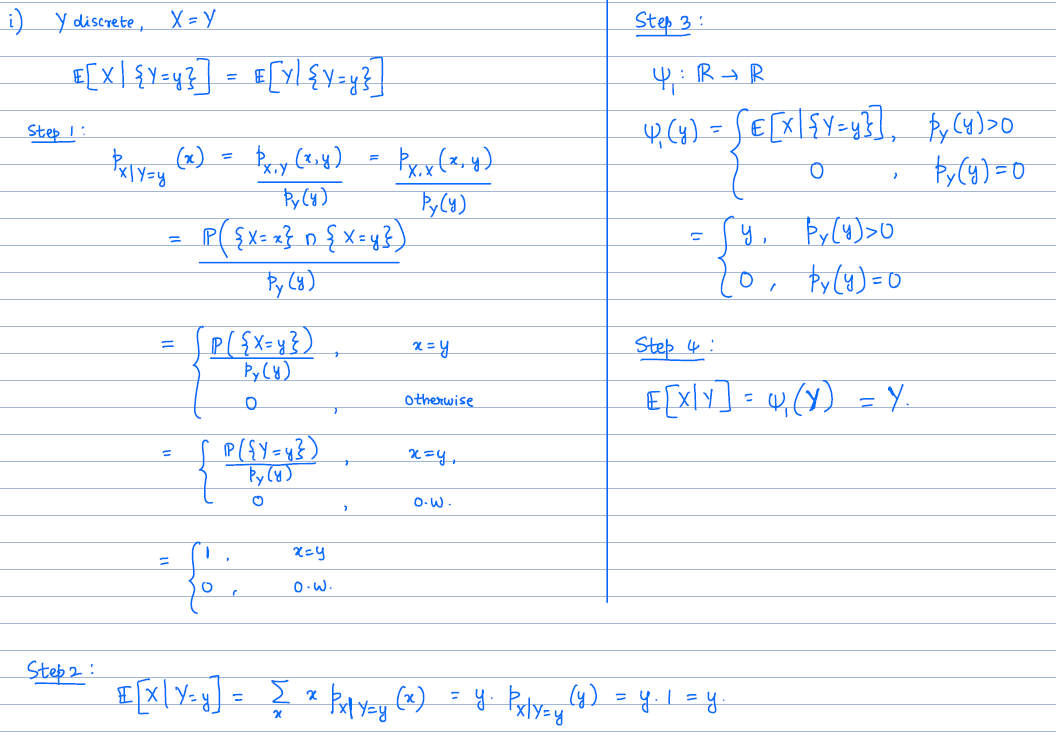 i) Y discrete, X = Y
𝔼[X | {Y=y}] = 𝔼[Y | {Y=y}]
Step 1:
p_{X|Y=y}(x) = p_{X,Y}(x,y) / p_Y(y) = p_{X,X}(x,y) / p_Y(y)
= ℙ({X=x} ∩ {X=y}) / p_Y(y)
= { ℙ({X=y}) / p_Y(y), x=y
0, otherwise
= { ℙ({Y=y}) / p_Y(y), x=y,
0, o.w.
= { 1, x=y
0, o.w.
Step 2:
𝔼[X | Y=y] = Σ_x x p_{X|Y=y}(x) = y. p_{X|Y=y}(y) = y.1 = y.
Step 3:
ψ_1 : ℝ → ℝ
ψ_1(y) = { 𝔼[X | {Y=y}], p_Y(y)>0
0, p_Y(y)=0
= { y, p_Y(y)>0
0, p_Y(y)=0
Step 4:
𝔼[X|Y] = ψ_1(Y) = Y.